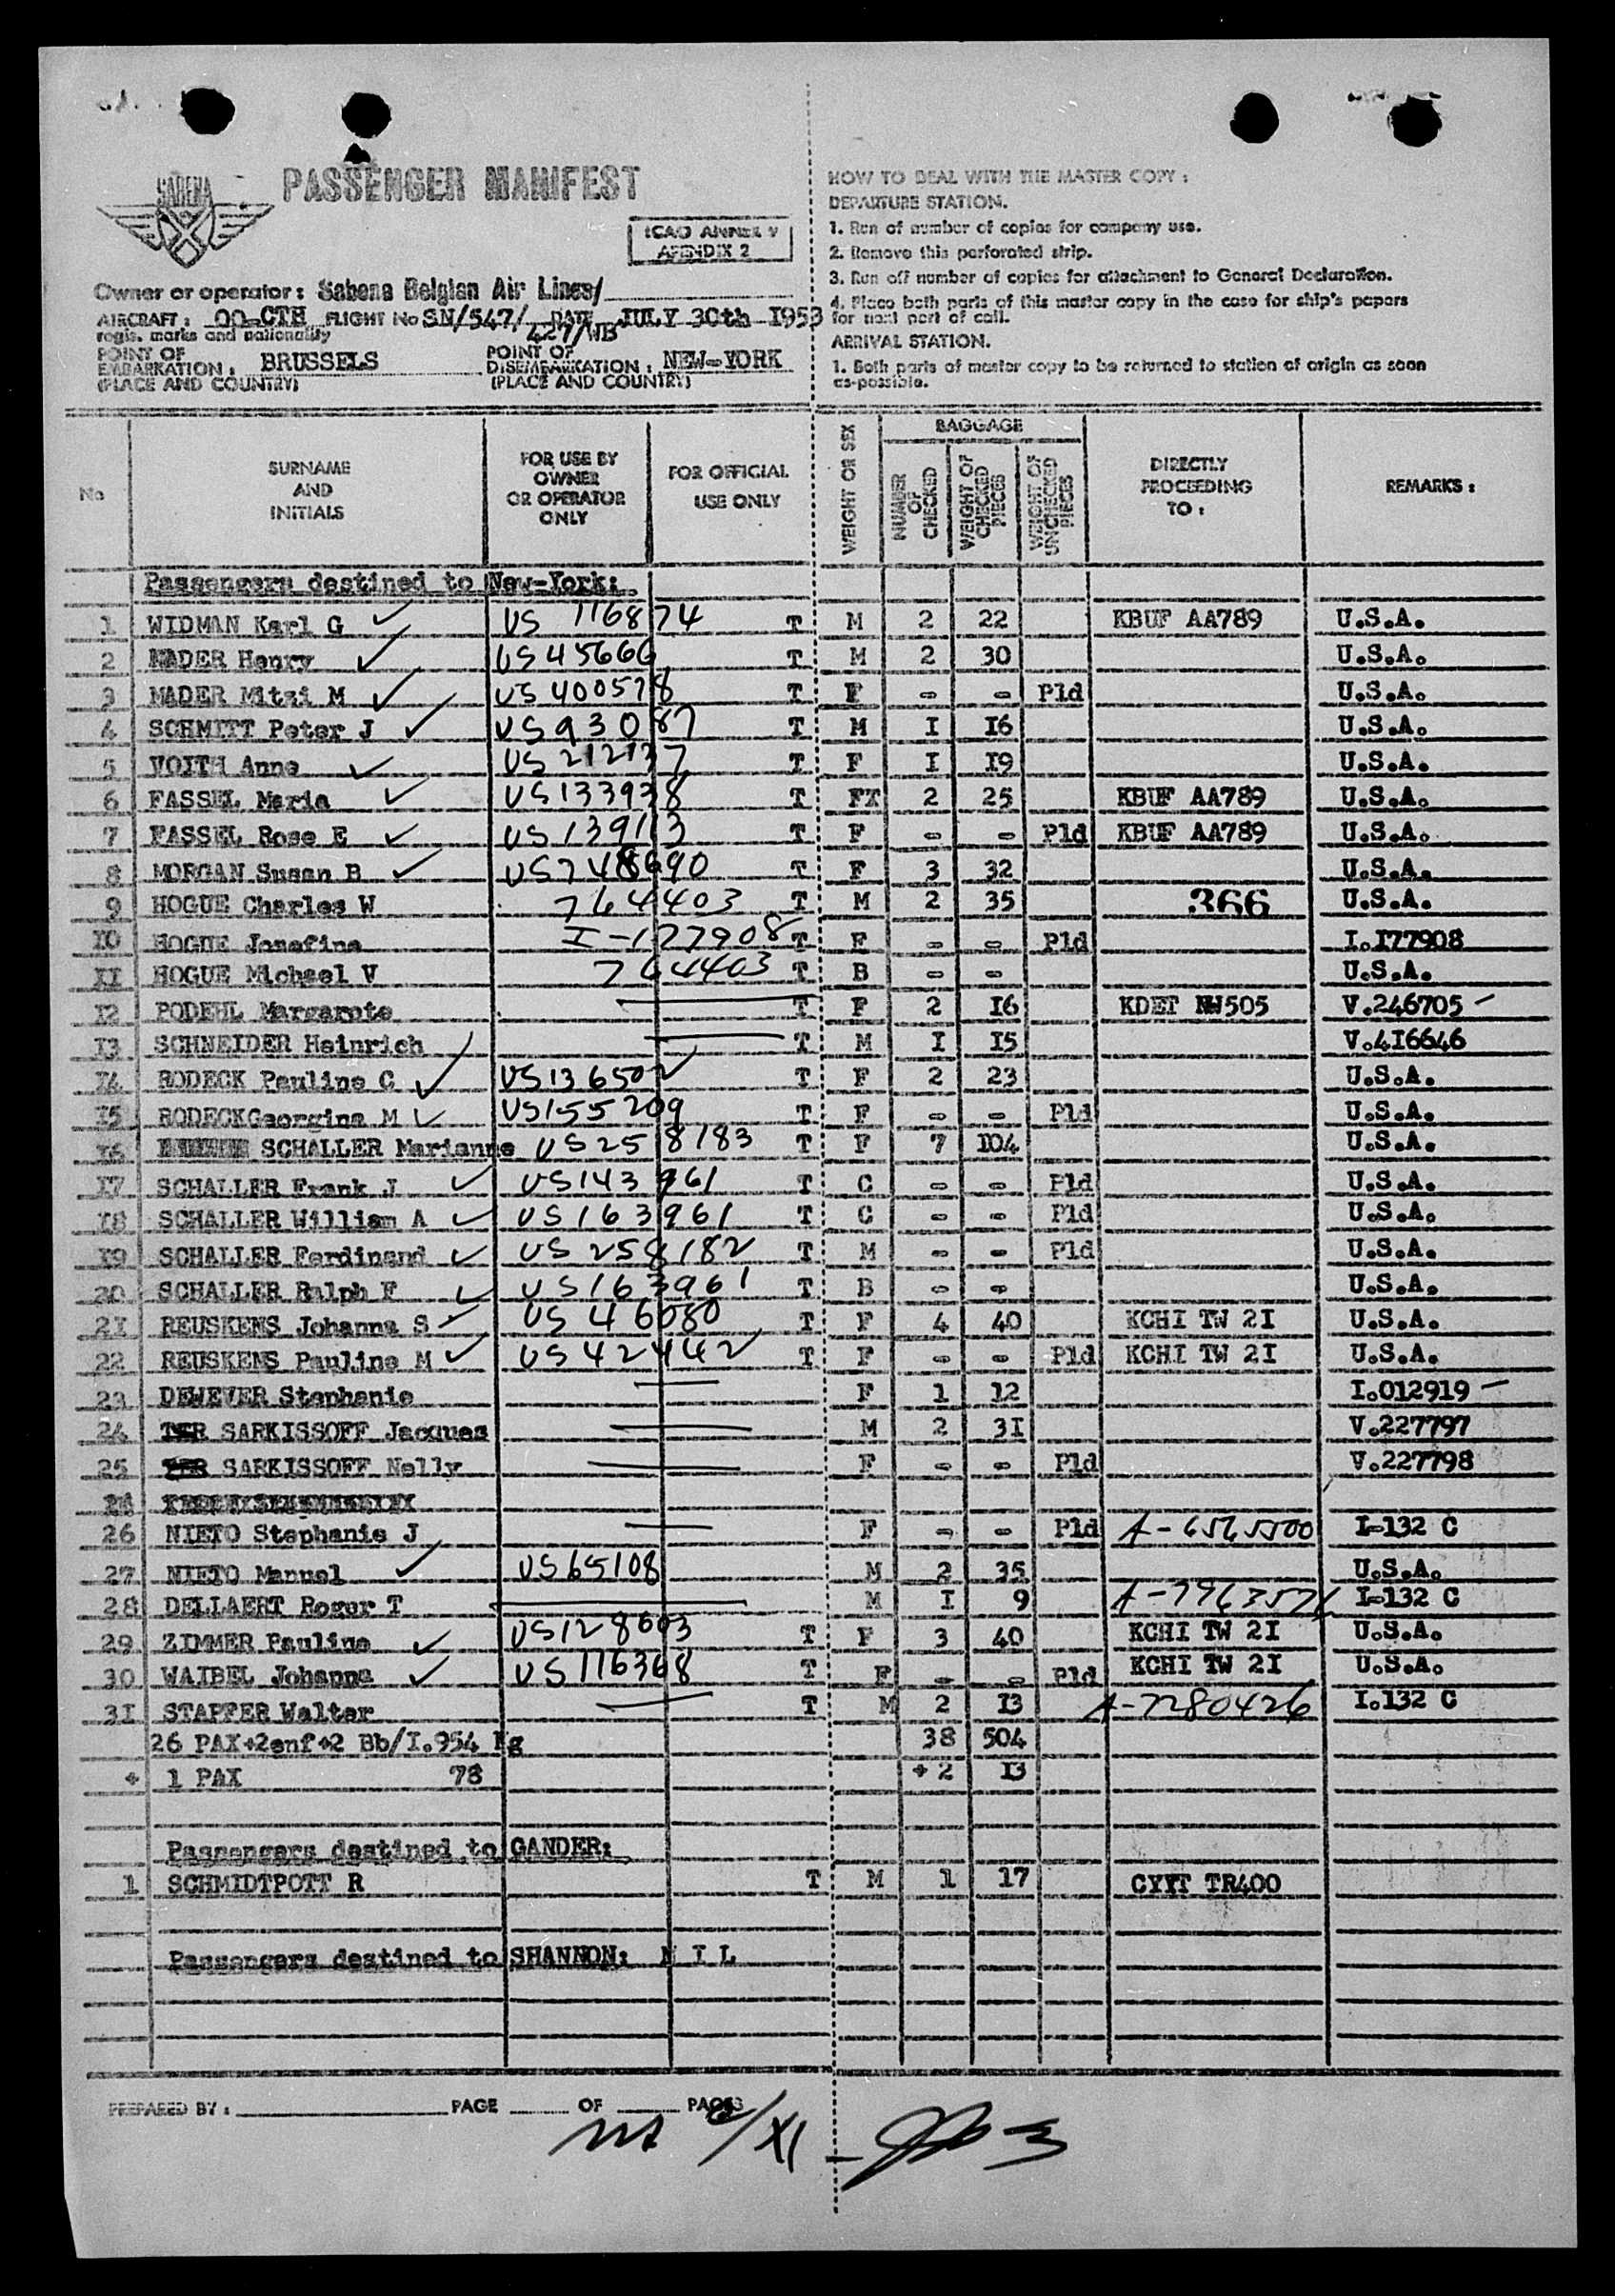 SABENA
PASSENGER MANIFEST
ICAO ANNEX 9
APENDIX 2
Owner or operator: Sabena Belgian Air Lines/
AIRCRAFT: OO-CTH FLIGHT No SN/547/ DATE JULY 30th 1953
regis. marks and nationality 427/WB
POINT OF EMBARKATION: BRUSSELS POINT OF DISEMBARKATION: NEW-YORK
(PLACE AND COUNTRY) (PLACE AND COUNTRY)
HOW TO DEAL WITH THE MASTER COPY:
DEPARTURE STATION.
1. Run of number of copies for company use.
2. Remove this perforated strip.
3. Run off number of copies for attachment to General Declaration.
4. Place both parts of this master copy in the case for ship's papers
for next port of call.
ARRIVAL STATION.
1. Both parts of master copy to be returned to station of origin as soon
as-possible.
No SURNAME AND INITIALS FOR USE BY OWNER OR OPERATOR ONLY FOR OFFICIAL USE ONLY WEIGHT OR SEX BAGGAGE NUMBER OF CHECKED WEIGHT OF CHECKED PIECES WEIGHT OF UNCHECKED PIECES DIRECTLY PROCEEDING TO: REMARKS:
Passengers destined to New-York:
1 WIDMAN Karl G ✓ US 116874 T M 2 22 KBUF AA789 U.S.A.
2 MADER Henry ✓ US 45666 T M 2 30 U.S.A.
3 MADER Mitzi M ✓ US 400578 T F - - Pld U.S.A.
4 SCHMITT Peter J ✓ US 93087 T M I I6 U.S.A.
5 VOITH Anna ✓ US 212137 T F I I9 U.S.A.
6 FASSEL Maria ✓ US 133938 T FI 2 25 KBUF AA789 U.S.A.
7 FASSEL Rose E ✓ US 139113 T F - - Pld KBUF AA789 U.S.A.
8 MORGAN Susan B ✓ US 748690 T F 3 32 U.S.A.
9 HOGUE Charles W 764403 T M 2 35 366 U.S.A.
IO HOGUE Josefina I-177908 T F - - Pld I.I77908
II HOGUE Michael V 764403 T B - - U.S.A.
I2 PODEHL Margarete T F 2 I6 KDET NW505 V.246705 -
I3 SCHNEIDER Heinrich T M I I5 V.4I6646
I4 RODECK Pauline C ✓ US 136502 T F 2 23 U.S.A.
I5 RODECKGeorgina M ✓ US 155209 T F - - Pld U.S.A.
I6 SCHALLER Marianne US 258183 T F 7 I04 U.S.A.
I7 SCHALLER Frank J ✓ US 143961 T C - - Pld U.S.A.
I8 SCHALLER William A ✓ US 163961 T C - - Pld U.S.A.
I9 SCHALLER Ferdinand ✓ US 258182 T M - - Pld U.S.A.
20 SCHALLER Ralph F ✓ US 163961 T B - - U.S.A.
2I REUSKENS Johanna S ✓ US 46080 T F 4 40 KCHI TW 2I U.S.A.
22 REUSKENS Pauline M ✓ US 42442 T F - - Pld KCHI TW 2I U.S.A.
23 DEWEVER Stephanie F 1 12 I.012919 -
24 TER SARKISSOFF Jacques M 2 3I V.227797
25 TER SARKISSOFF Nelly F - - Pld V.227798
26 NIETO Stephanie J F - - Pld A-6565500 I-132 C
27 NIETO Manuel ✓ US 65108 M 2 35 U.S.A.
28 DELLAERT Roger T M I 9 A-7963576 I-132 C
29 ZIMMER Pauline ✓ US 128603 T F 3 40 KCHI TW 2I U.S.A.
30 WAIBEL Johanna ✓ US 116368 T F - - Pld KCHI TW 2I U.S.A.
3I STAPFER Walter T M 2 I3 A-7280426 I.132 C
26 PAX+2enf+2 Bb/I.954 Kg 38 504
+ 1 PAX 78 + 2 I3
Passengers destined to GANDER:
1 SCHMIDTPOTT R T M 1 17 CYYT TR400
Passengers destined to SHANNON: N I L
PREPARED BY: PAGE OF PAGES